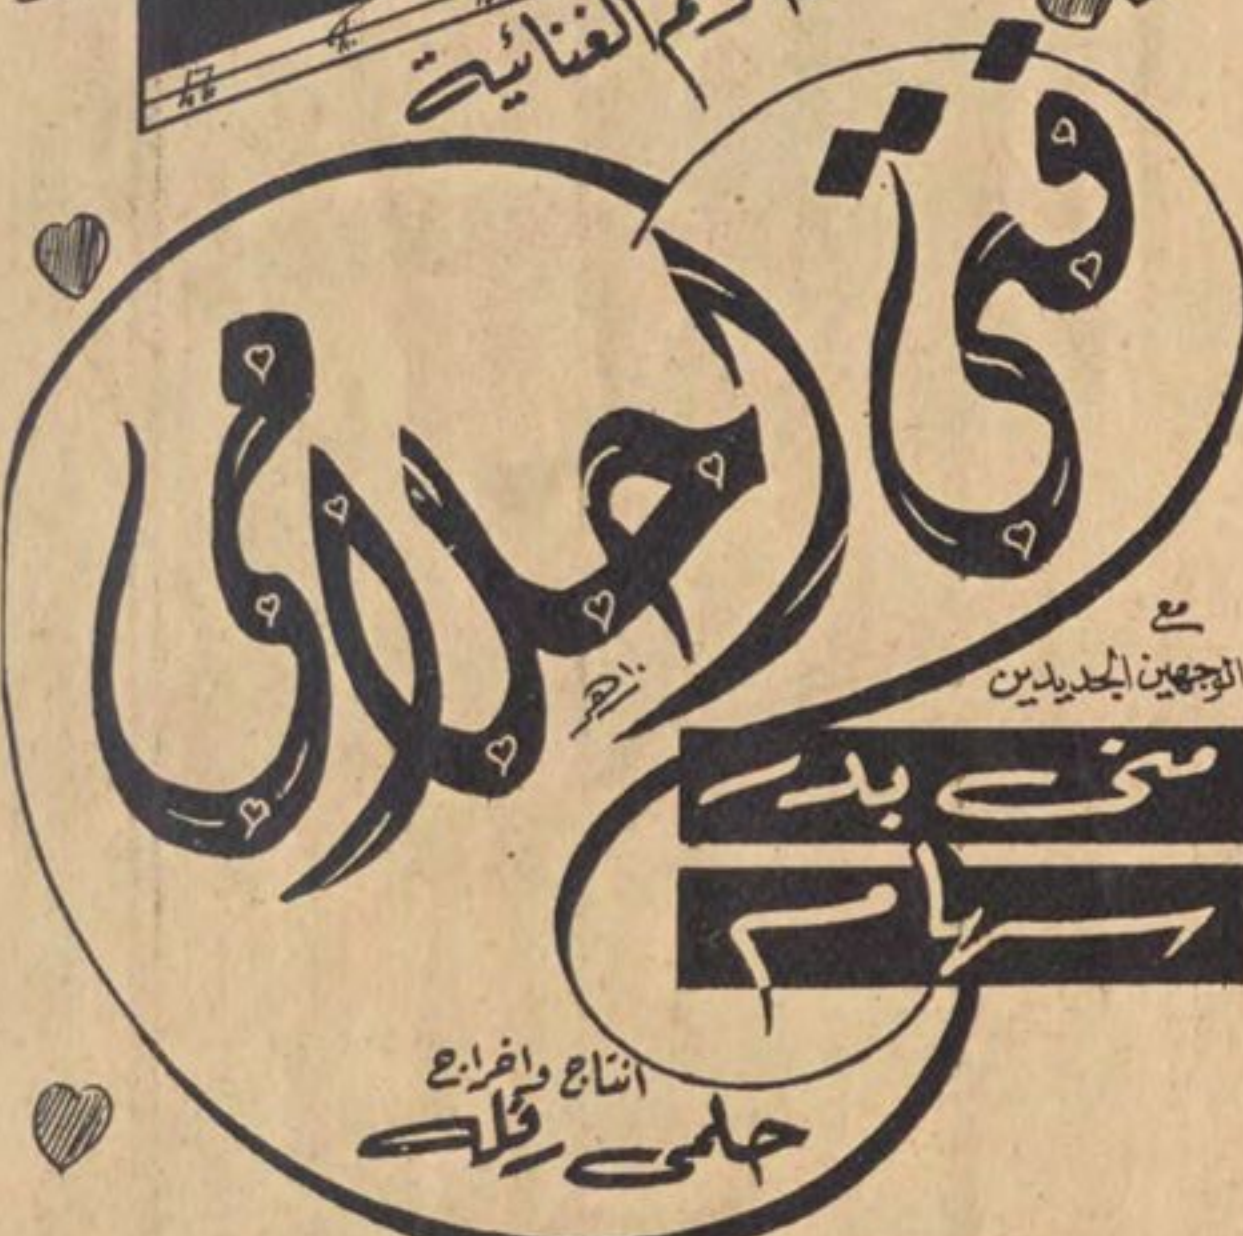 الغنائية
فتى
أحلامى
مع
الوجهين الجديدين
منى بدر
سهام
انتاج واخراج
حلمى رفله